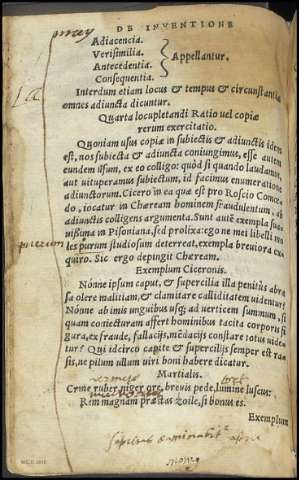 DE INVENTIONE
Adiacencia.
Verisimilia.
Antecedentia.
Consequentia.
Appellantur.
Interdum etiam locus & tempus & circunstantia
omnes adiuncta dicuntur.
Quarta locupletandi Ratio vel copiæ
rerum exercitatio.
Quoniam usus copiæ in subiectis & adiunctis idem
est, nos subiecta & adiuncta coniungimus, esse autem
eundem usum, ex eo colligo: quòd si quando laudamus,
aut uituperamus subiectum, id facimus enumeratione
adiunctorum. Cicero in ea quæ est pro Roscio Comoe
do, iocatur in Chæream hominem fraudulentum, ab
adiunctis colligens argumenta. Sunt autē exempla sua
uißima in Pisoniana, sed prolixa: ego ne mei libelli mo
les purum studiosum deterreat, exempla breuiora ex-
quiro. Sic ergo depingit Chæream.
Exemplum Ciceronis.
Nónne ipsum caput, & supercilia illa penitus abra
sa olere malitiam, & clamitare calliditatem uidentur?
Nónne ab imis unguibus usq; ad verticem summum, si
quam coniecturam affert hominibus tacita corporis fi
gura, ex fraude, fallacijs, mēdacijs constare totus uiden
tur? Qui idcirco capite & supercilijs semper est ra-
sis, ne pilum ullum uiri boni habere dicatur.
Martialis.
Crine ruber, niger ore, brevis pede, lumine luscus:
Rem magnam præstas Zoile, si bonus es.
Exemplum